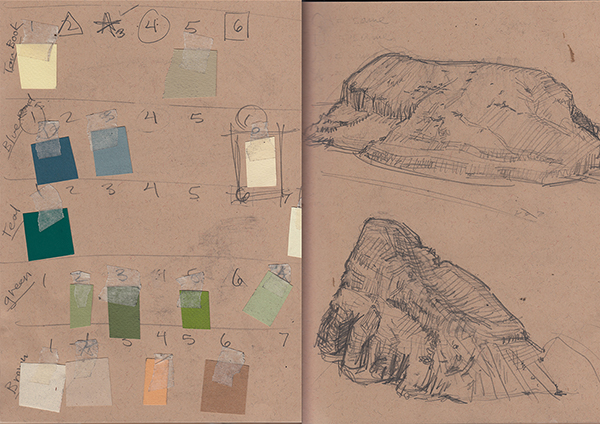 Tan Book 1 2 3 4 5 6
Blue 1 2 3 4 5
Teal 2 3 4 5 6 7
green 1 2 3 4 5 6
Brown 1 4 5 6 7